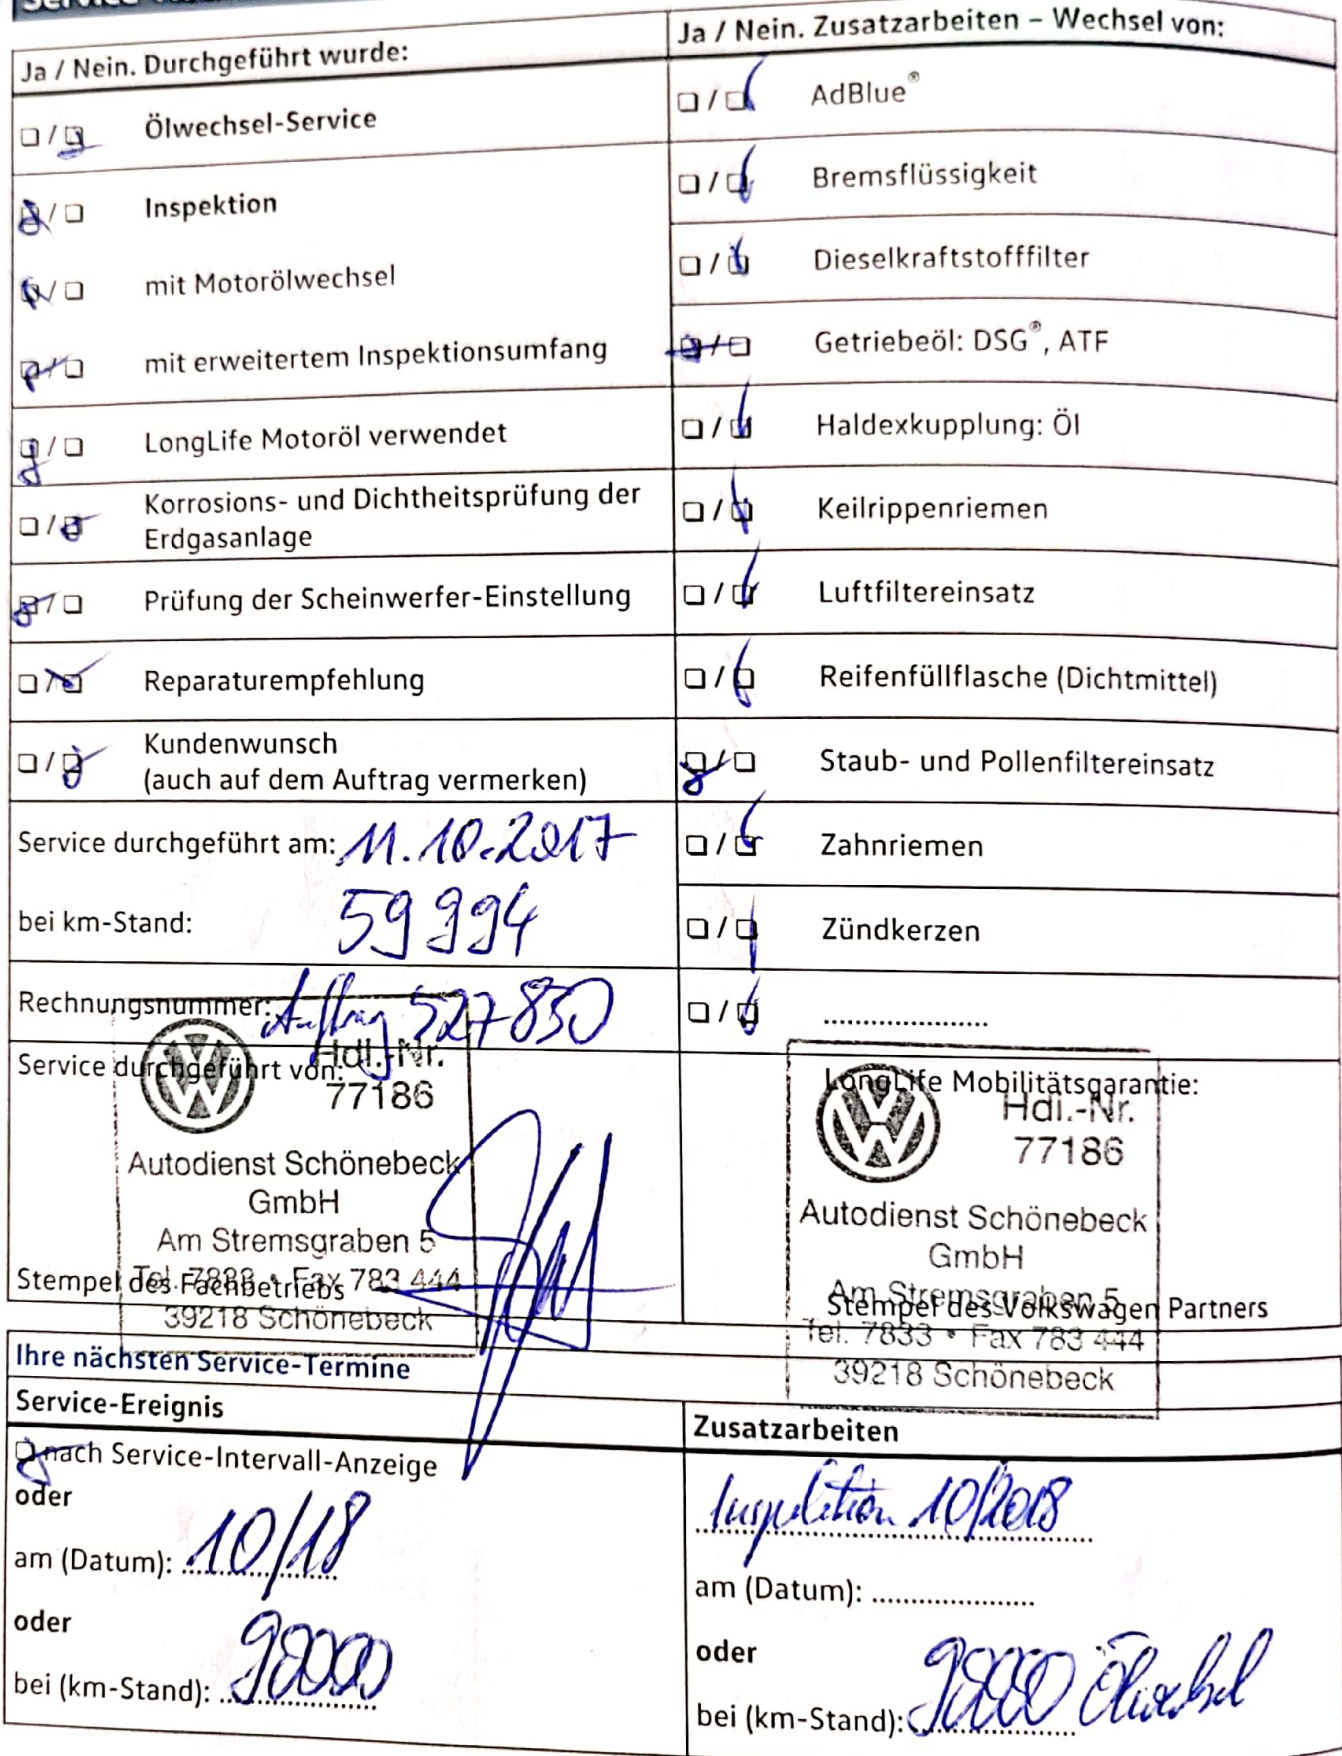 Ja / Nein. Durchgeführt wurde:
☐ / ☐ Ölwechsel-Service
☐ / ☐ Inspektion
☐ / ☐ mit Motorölwechsel
☐ / ☐ mit erweitertem Inspektionsumfang
☐ / ☐ LongLife Motoröl verwendet
☐ / ☐ Korrosions- und Dichtheitsprüfung der
Erdgasanlage
☐ / ☐ Prüfung der Scheinwerfer-Einstellung
☐ / ☐ Reparaturempfehlung
☐ / ☐ Kundenwunsch
(auch auf dem Auftrag vermerken)
Service durchgeführt am: 11.10.2017
bei km-Stand: 59994
Rechnungsnummer: Auftrag 527850
Service durchgeführt von:
Hdl.-Nr.
77186
Autodienst Schönebeck
GmbH
Am Stremsgraben 5
Tel. 7833 • Fax 783 444
39218 Schönebeck
Stempel des Fachbetriebs
Ja / Nein. Zusatzarbeiten – Wechsel von:
☐ / ☐ AdBlue®
☐ / ☐ Bremsflüssigkeit
☐ / ☐ Dieselkraftstofffilter
☐ / ☐ Getriebeöl: DSG®, ATF
☐ / ☐ Haldexkupplung: Öl
☐ / ☐ Keilrippenriemen
☐ / ☐ Luftfiltereinsatz
☐ / ☐ Reifenfüllflasche (Dichtmittel)
☐ / ☐ Staub- und Pollenfiltereinsatz
☐ / ☐ Zahnriemen
☐ / ☐ Zündkerzen
☐ / ☐ ....................
LongLife Mobilitätsgarantie:
Hdl.-Nr.
77186
Autodienst Schönebeck
GmbH
Am Stremsgraben 5
Tel. 7833 • Fax 783 444
39218 Schönebeck
Stempel des Volkswagen Partners
Ihre nächsten Service-Termine
Service-Ereignis
☐ nach Service-Intervall-Anzeige
oder
am (Datum): 10/18
oder
bei (km-Stand): 90000
Zusatzarbeiten
Inspektion 10/2018
am (Datum): ....................
oder
bei (km-Stand): 90000 Ölwechsel